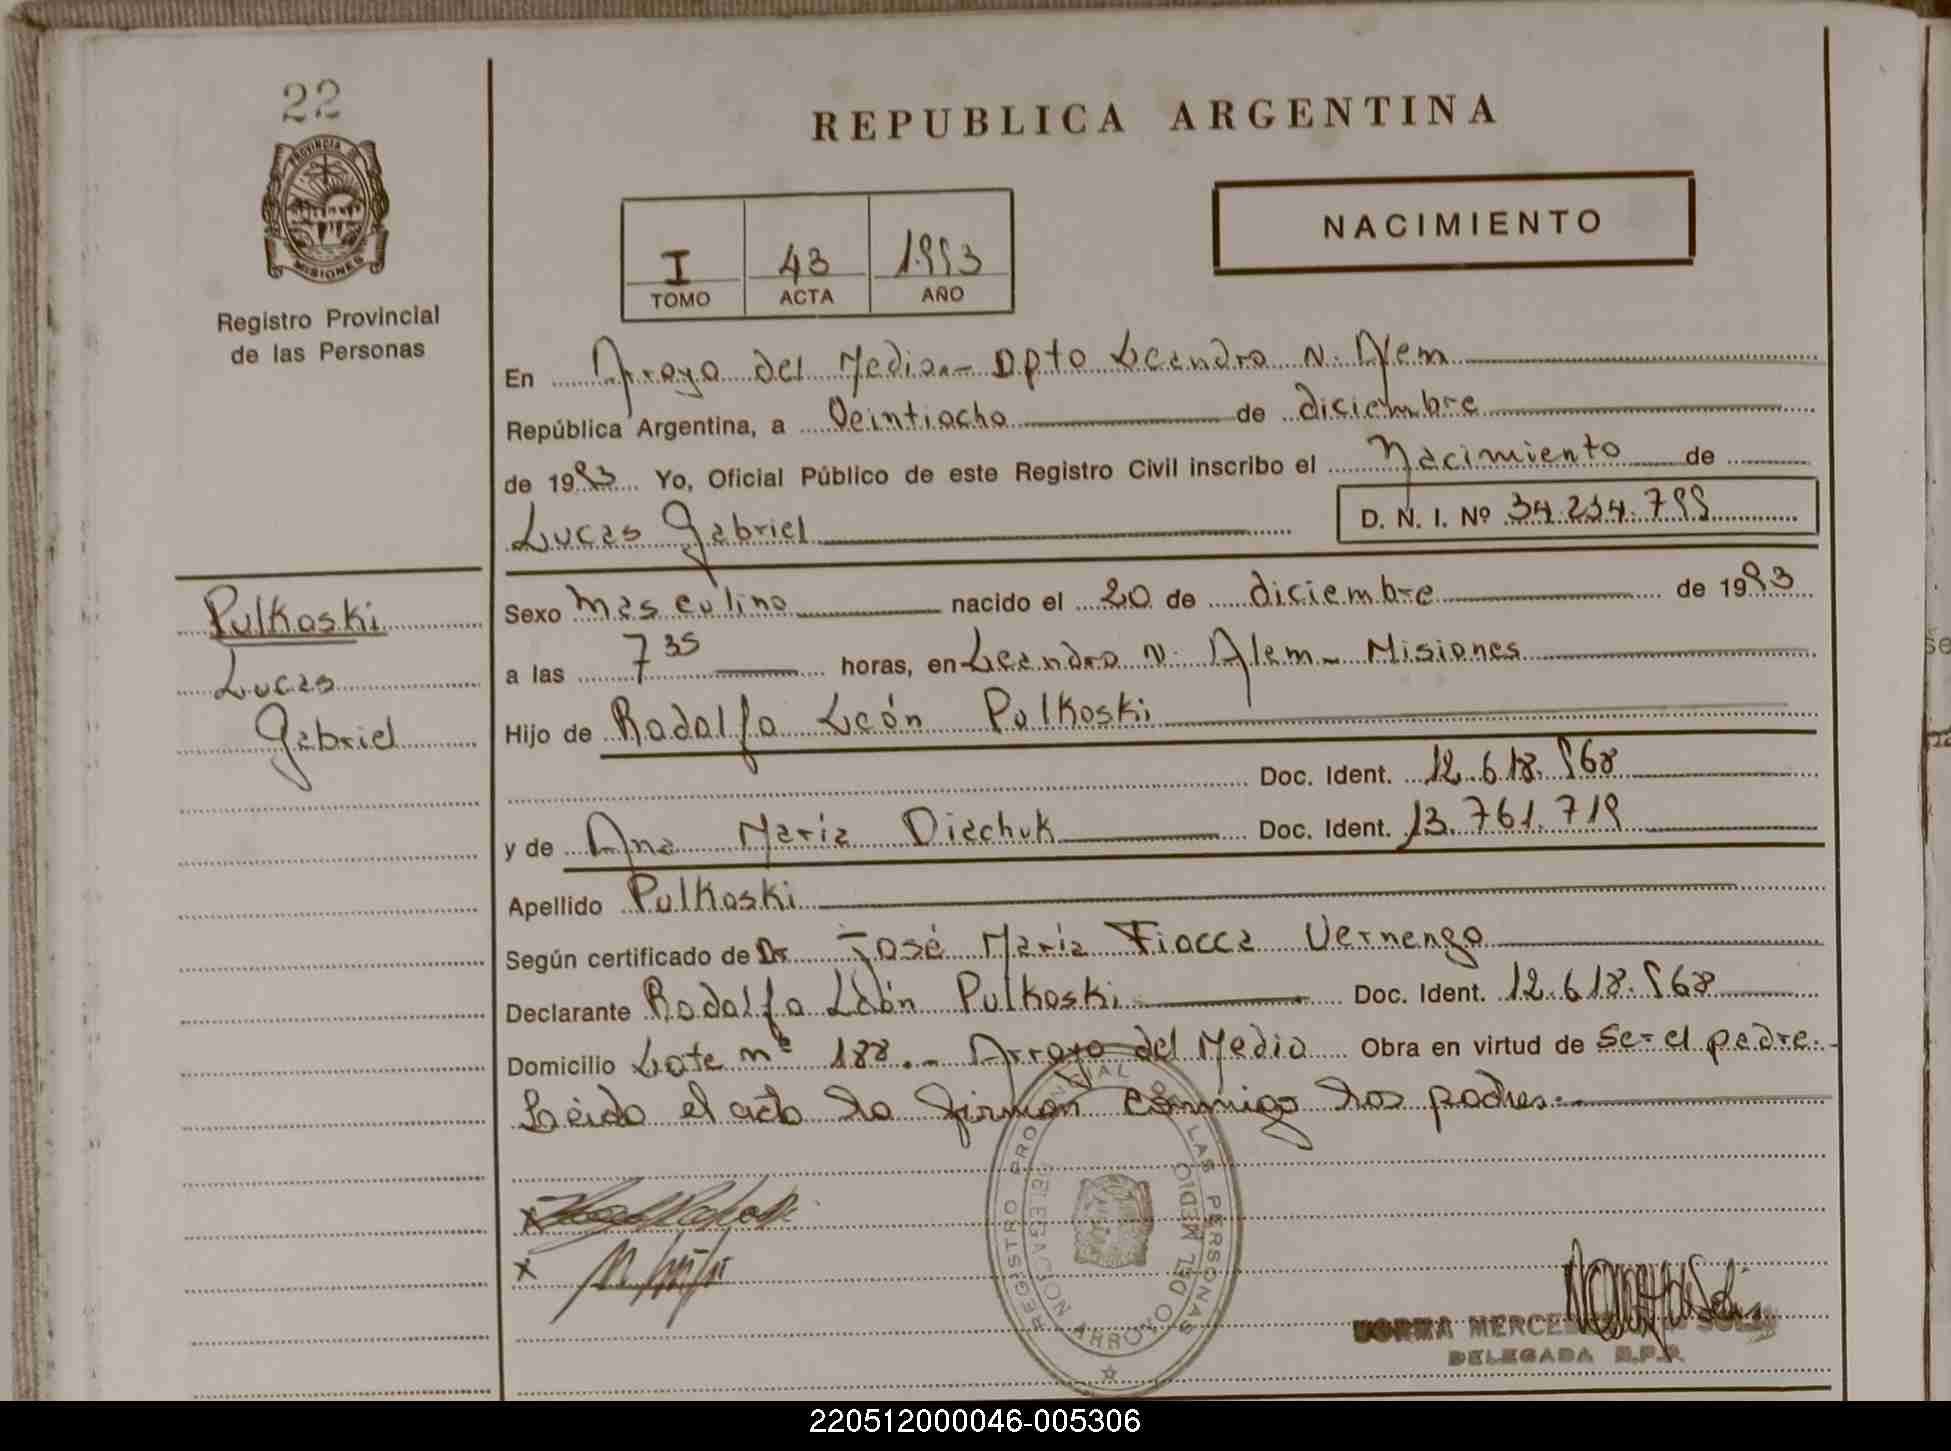 22
REPUBLICA ARGENTINA
PROVINCIA DE
MISIONES
Registro Provincial
de las Personas
I 43 1993
TOMO ACTA AÑO
NACIMIENTO
En Arroyo del Medio.- Dpto Leandro N. Alem
República Argentina, a Veintiocho de diciembre
de 1993 Yo, Oficial Público de este Registro Civil inscribo el Nacimiento de
Lucas Gabriel D. N. I. Nº 34.234.799
Pulkoski
Lucas
Gabriel
Sexo Masculino nacido el 20 de diciembre de 1993
a las 7 35 horas, en Leandro N. Alem - Misiones
Hijo de Rodolfo León Pulkoski
Doc. Ident. 12.618.968
y de Ana María Diachuk Doc. Ident. 13.761.719
Apellido Pulkoski
Según certificado de Dr José María Fiocca Vernengo
Declarante Rodolfo León Pulkoski Doc. Ident. 12.618.968
Domicilio Lote nº 188.- Arroyo del Medio Obra en virtud de Ser el padre.-
Leido el acta la firman conmigo los padres.-
REGISTRO PROVINCIAL DE LAS PERSONAS
DELEGACION
ARROYO DEL MEDIO
NORMA
DELEGADA R.P.P.
220512000046-005306